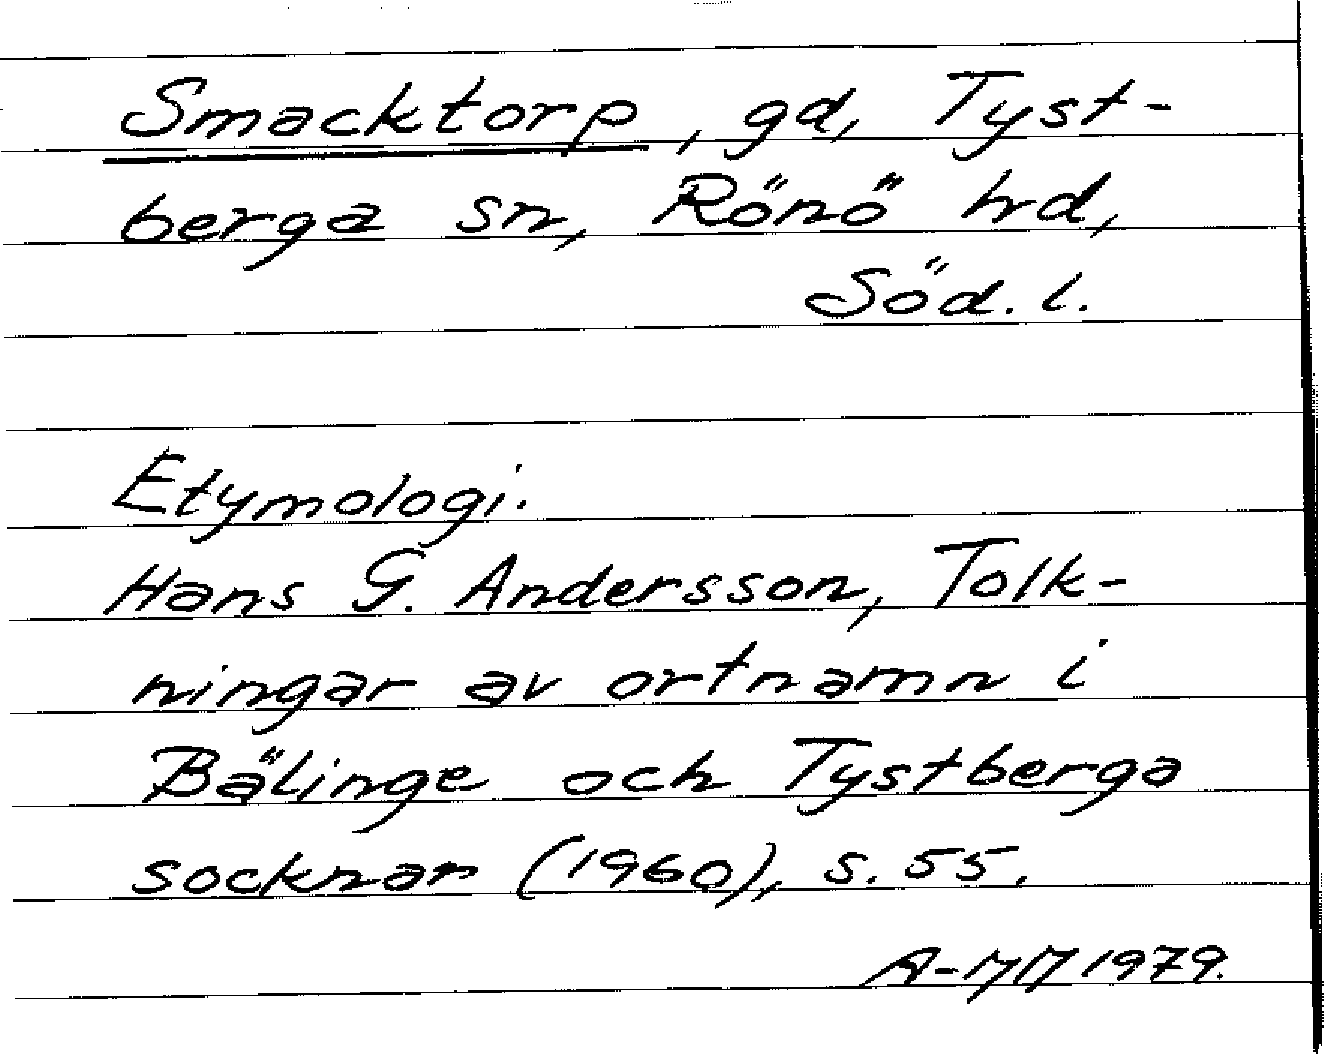 Smacktorp, gd, Tyst-
berga sn, Rönö hd,
Söd. l.
Etymologi.
Hans G. Andersson, Tolk-
ningar av ortnamn i
Bälinge och Tystberga
socknar (1960), s. 55.
1979.